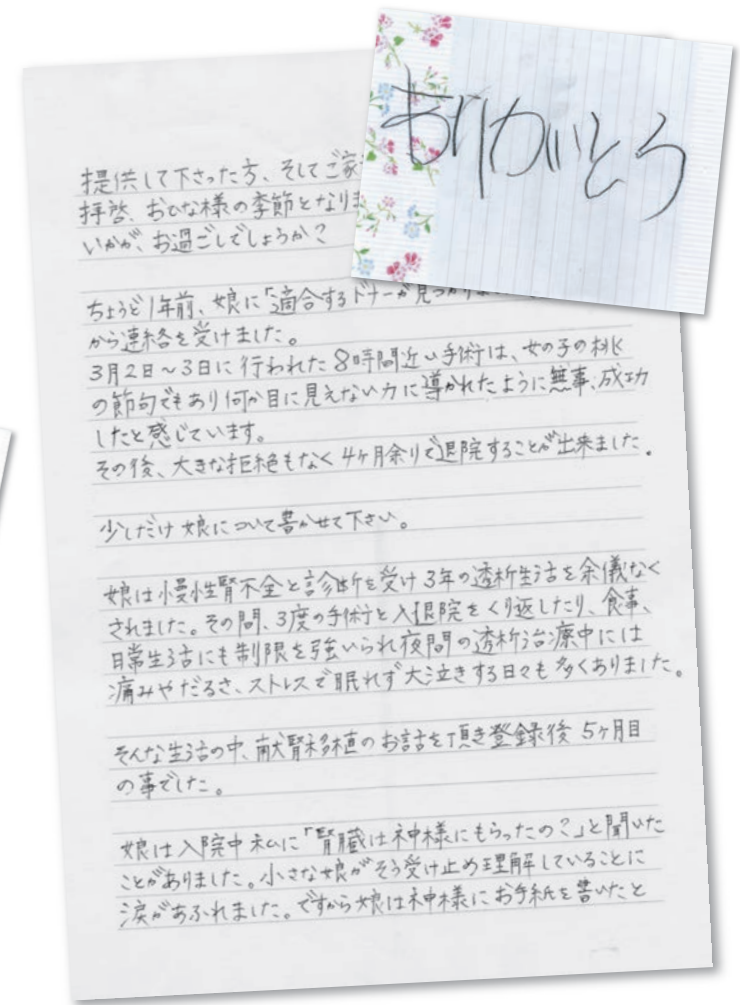 ありがとう
提供して下さった方、そしてご家
拝啓、おひな様の季節となりま
いかが、お過ごしでしょうか?
ちょうど1年前、娘に「適合するドナーが見つかりま
から連絡を受けました。
3月2日~3日に行われた8時間近い手術は、女の子の桃
の節句でもあり何か目に見えない力に導かれたように無事、成功
したと感じています。
その後、大きな拒絶もなく4ヶ月余りで退院することが出来ました。
少しだけ娘について書かせて下さい。
娘は慢性腎不全と診断を受け3年の透析生活を余儀なく
されました。その間、3度の手術と入退院をくり返したり、食事、
日常生活にも制限を強いられ夜間の透析治療中には
痛みやだるさ、ストレスで眠れず大泣きする日々も多くありました。
そんな生活の中、献腎移植のお話を頂き登録後5ヶ月目
の事でした。
娘は入院中私に「腎臓は神様にもらったの?」と聞いた
ことがありました。小さな娘がそう受け止め理解していることに
涙があふれました。ですから娘は神様にお手紙を書いたと